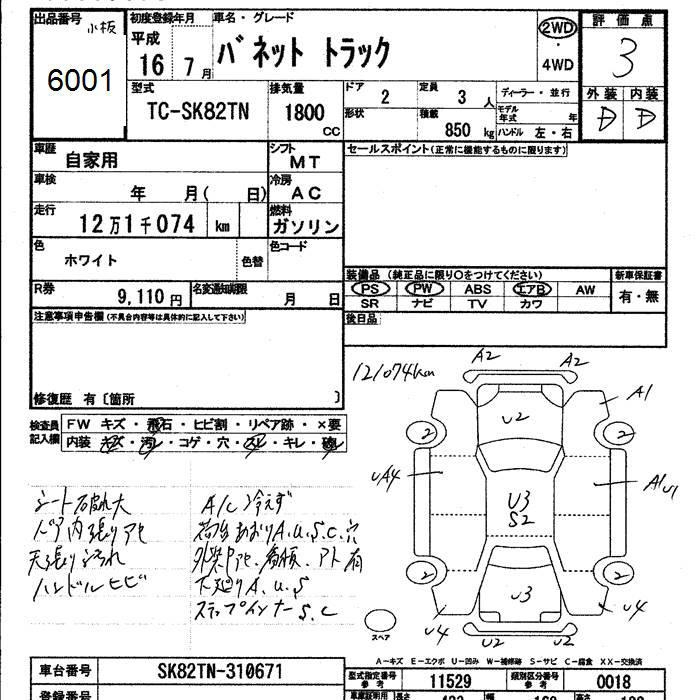 出品番号 小板
6001
初度登録年月
平成
16 7月
車名・グレード
バネット トラック
2WD
・
4WD
評価点
3
外装 内装
D D
型式
TC-SK82TN
排気量
1800
CC
ドア 2
定員 3 人
形状
積載 850 kg
ディーラー・並行
モデル年式 年
ハンドル 左・右
車歴
自家用
シフト
MT
セールスポイント(正常に機能するものに限ります)
車検
年 月( 日)
冷房
AC
走行
12万1千074 km
燃料
ガソリン
色
ホワイト
色替
色コード
R券
9,110円
名変通知期限
月 日
装備品 (純正品に限り○をつけてください)
PS PW ABS エアB AW
SR ナビ TV カワ
新車保証書
有・無
後日品
注意事項申告欄(不具合内容等は具体的に記入して下さい)
修復歴 有〔箇所 〕
検査員
記入欄
FW キズ・飛石・ヒビ割・リペア跡・×要
内装 キズ・汚レ・コゲ・穴・スレ・キレ・破レ
シート破れ大
ドア内張りアセ
天張り汚れ
ハンドルヒビ
A/C冷えず
荷台あおりA.U.S.C.穴
外装アセ、看板、アト有
下廻りA.U.S
ステップインナーS.C
121074km
A2 A2
A1
U2
2 2
UA4
A1 U1
U3
S2
2 2
U3
U4 U4
U2 U2
スペア
A-キズ E-エクボ U-凹み W-補修跡 S-サビ C-腐食 XX-交換済
車台番号
SK82TN-310671
型式指定番号
参考
11529
類別区分番号
参考
0018
登録番号
車庫証明用
長さ
幅
高さ